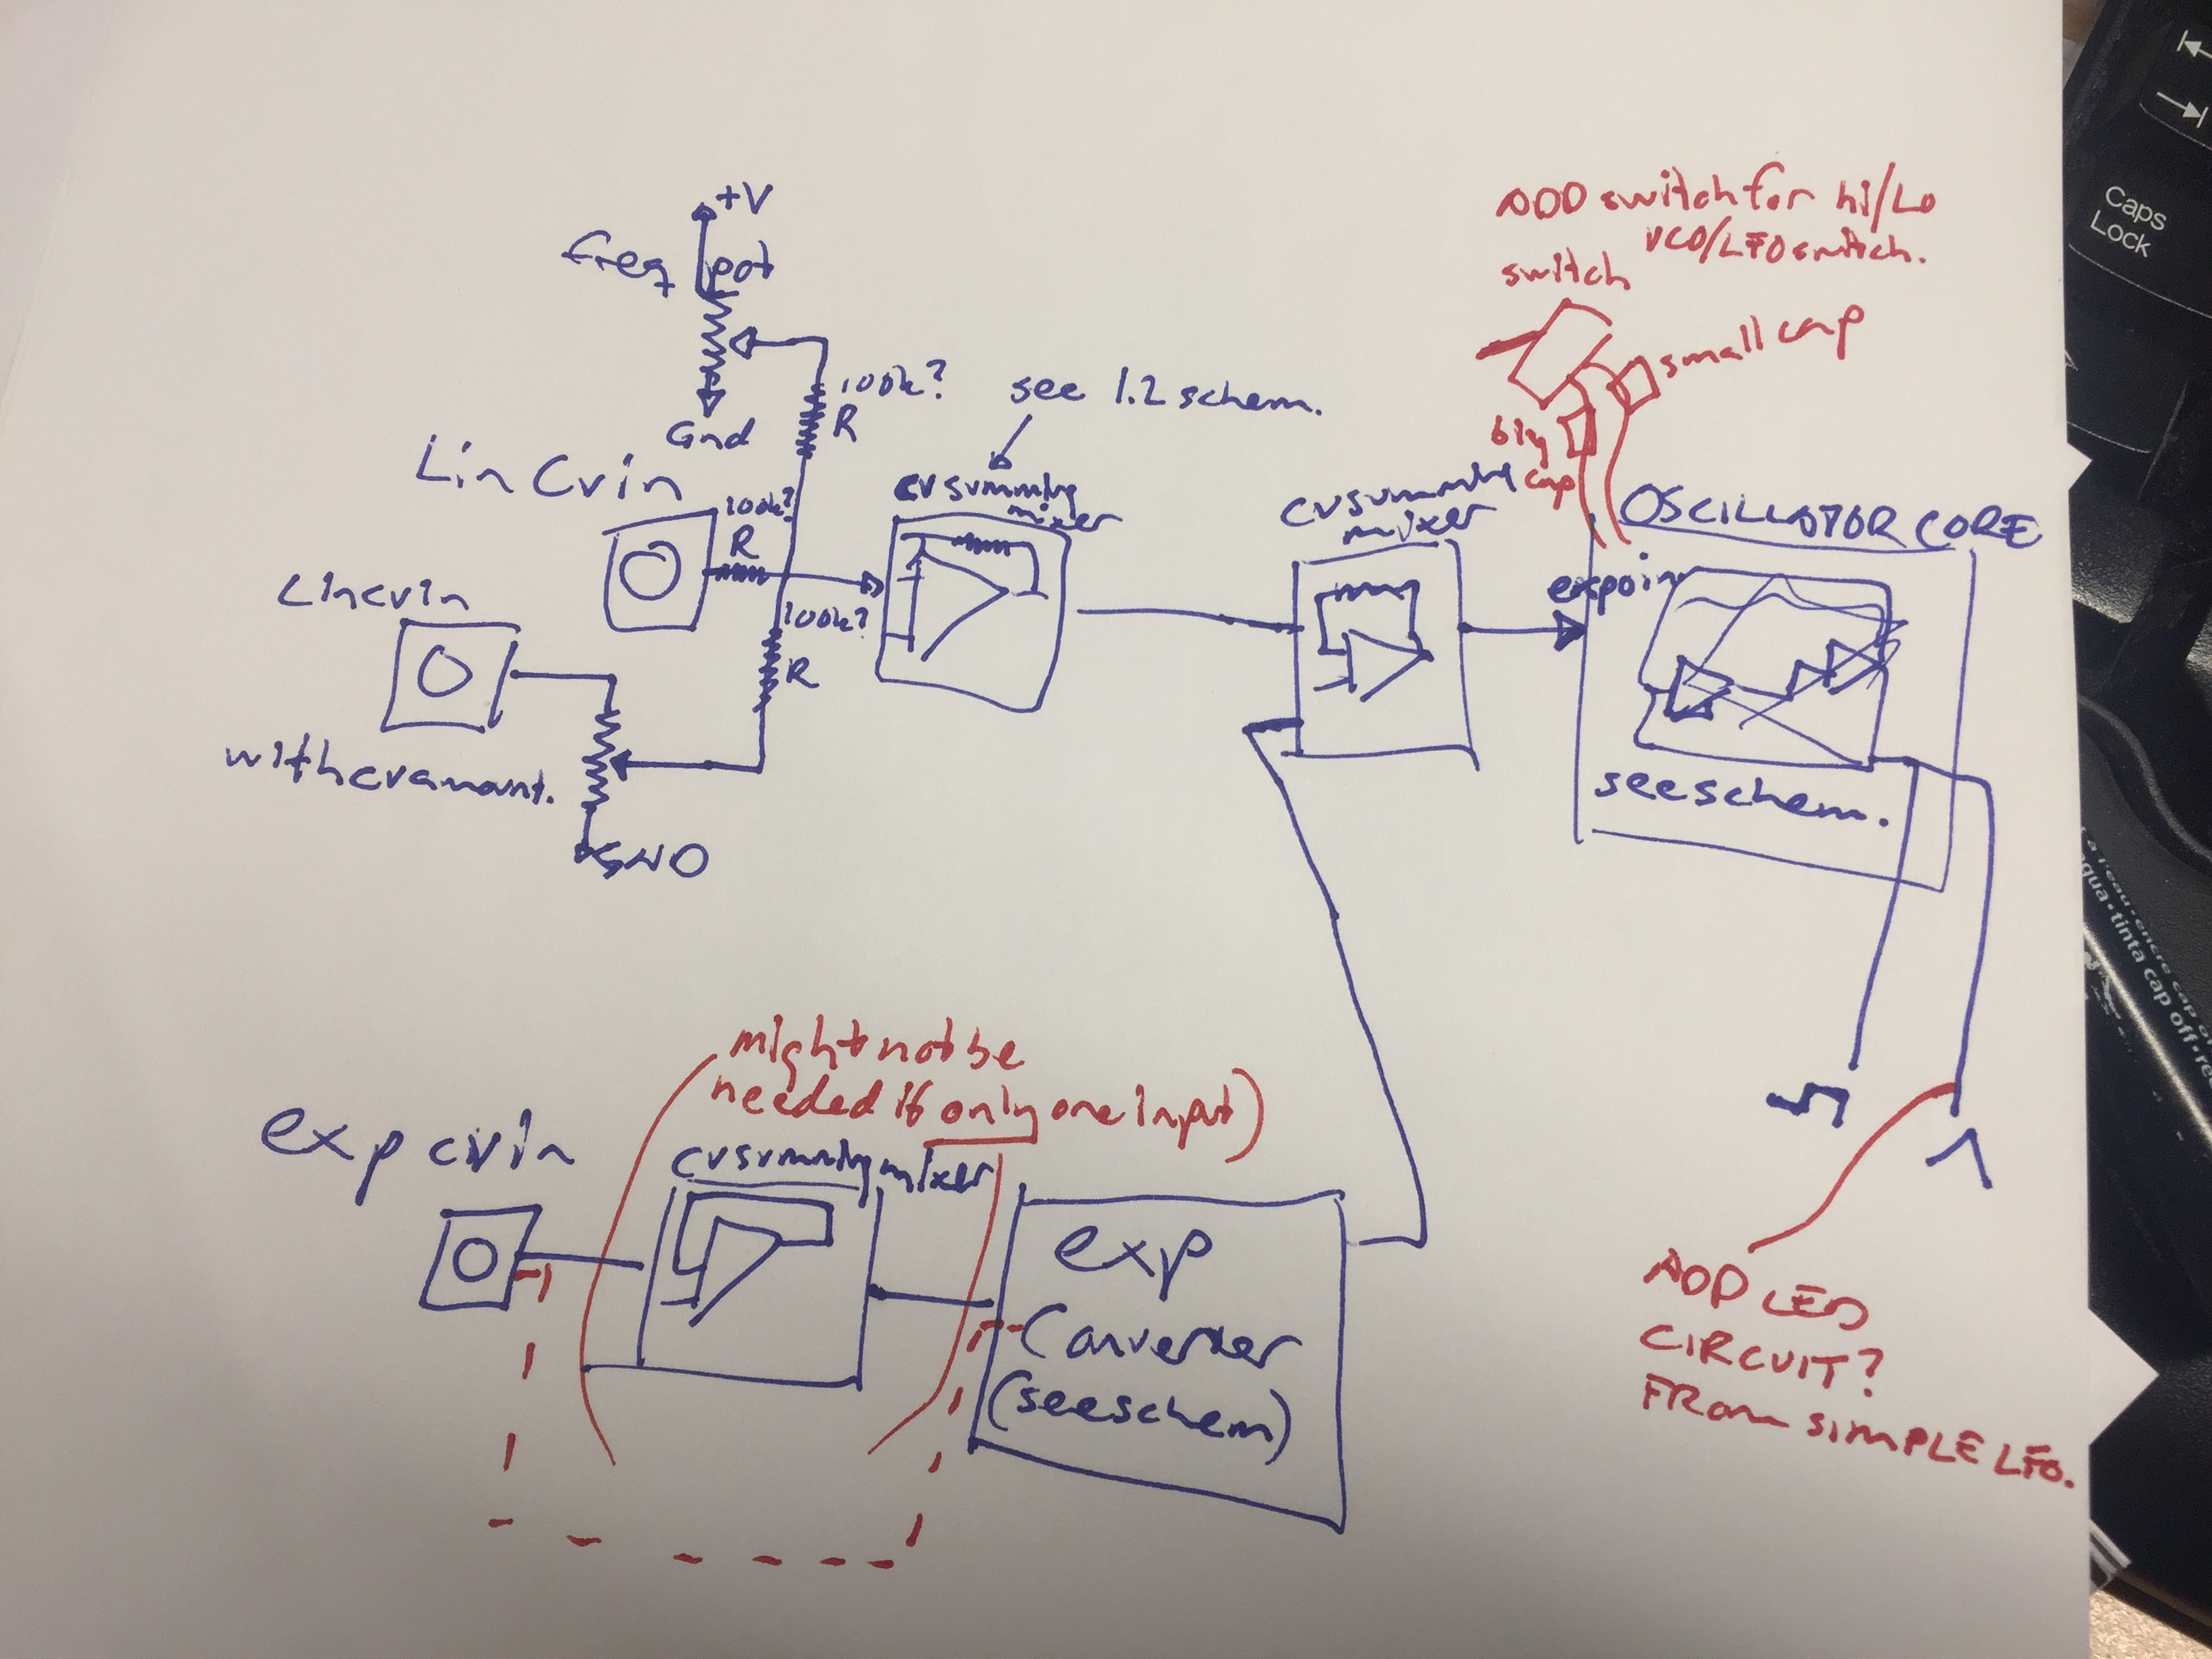 +V
freq pot
Gnd
100k?
R
see 1.2 schem.
Lin Cvin
100k?
R
cv summing
mixer
Lincvin
100k?
R
with cv amount.
GND
ADD switch for hi/Lo
VCO/LFO switch.
switch
small cap
big
cap
cv summing
mixer
OSCILLATOR CORE
expo in
see schem.
might not be
needed if only one input)
exp cvin
cv summing mixer
exp
Converter
(see schem)
ADD LED
CIRCUIT?
FROM SIMPLE LFO.
Caps
Lock